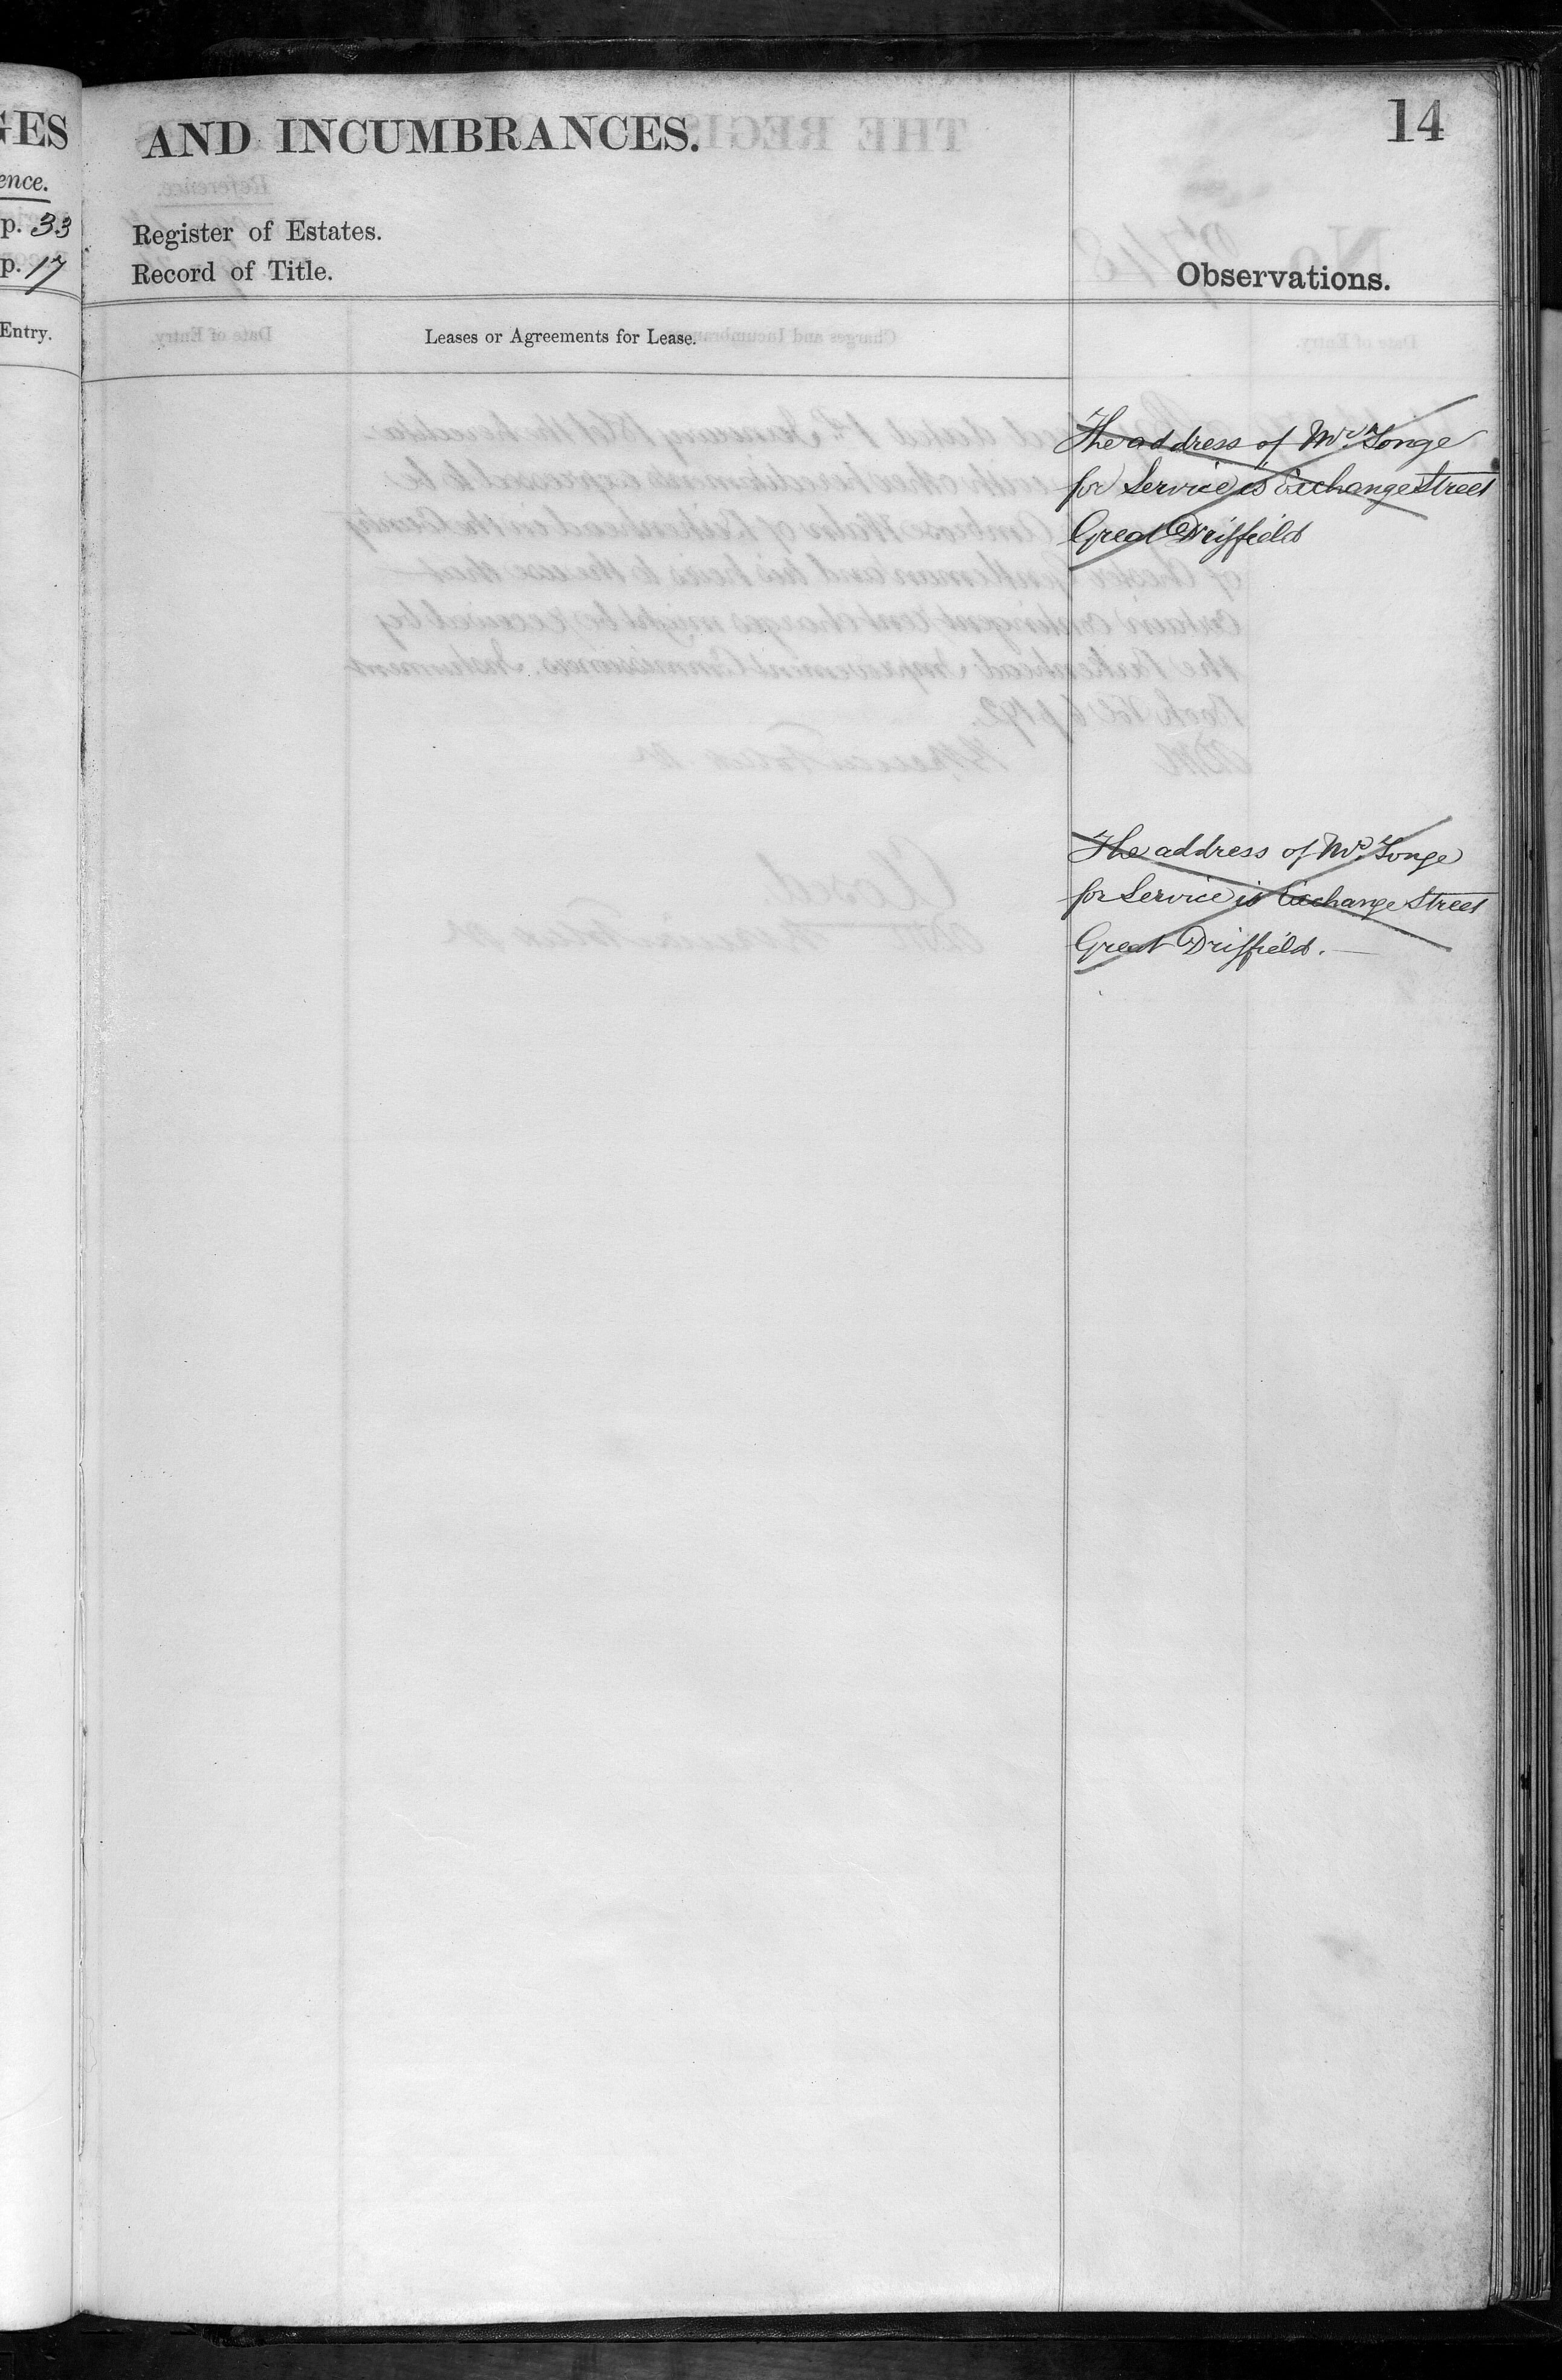 GES
ence.
p. 33
p. 17
Entry.
AND INCUMBRANCES.
14
Register of Estates.
Record of Title.
Observations.
Leases or Agreements for Lease.
The address of Mr. Tonge
for Service is Exchange Street
Great Driffield
The address of Mr. Tonge
for Service is Exchange Street
Great Driffield. —